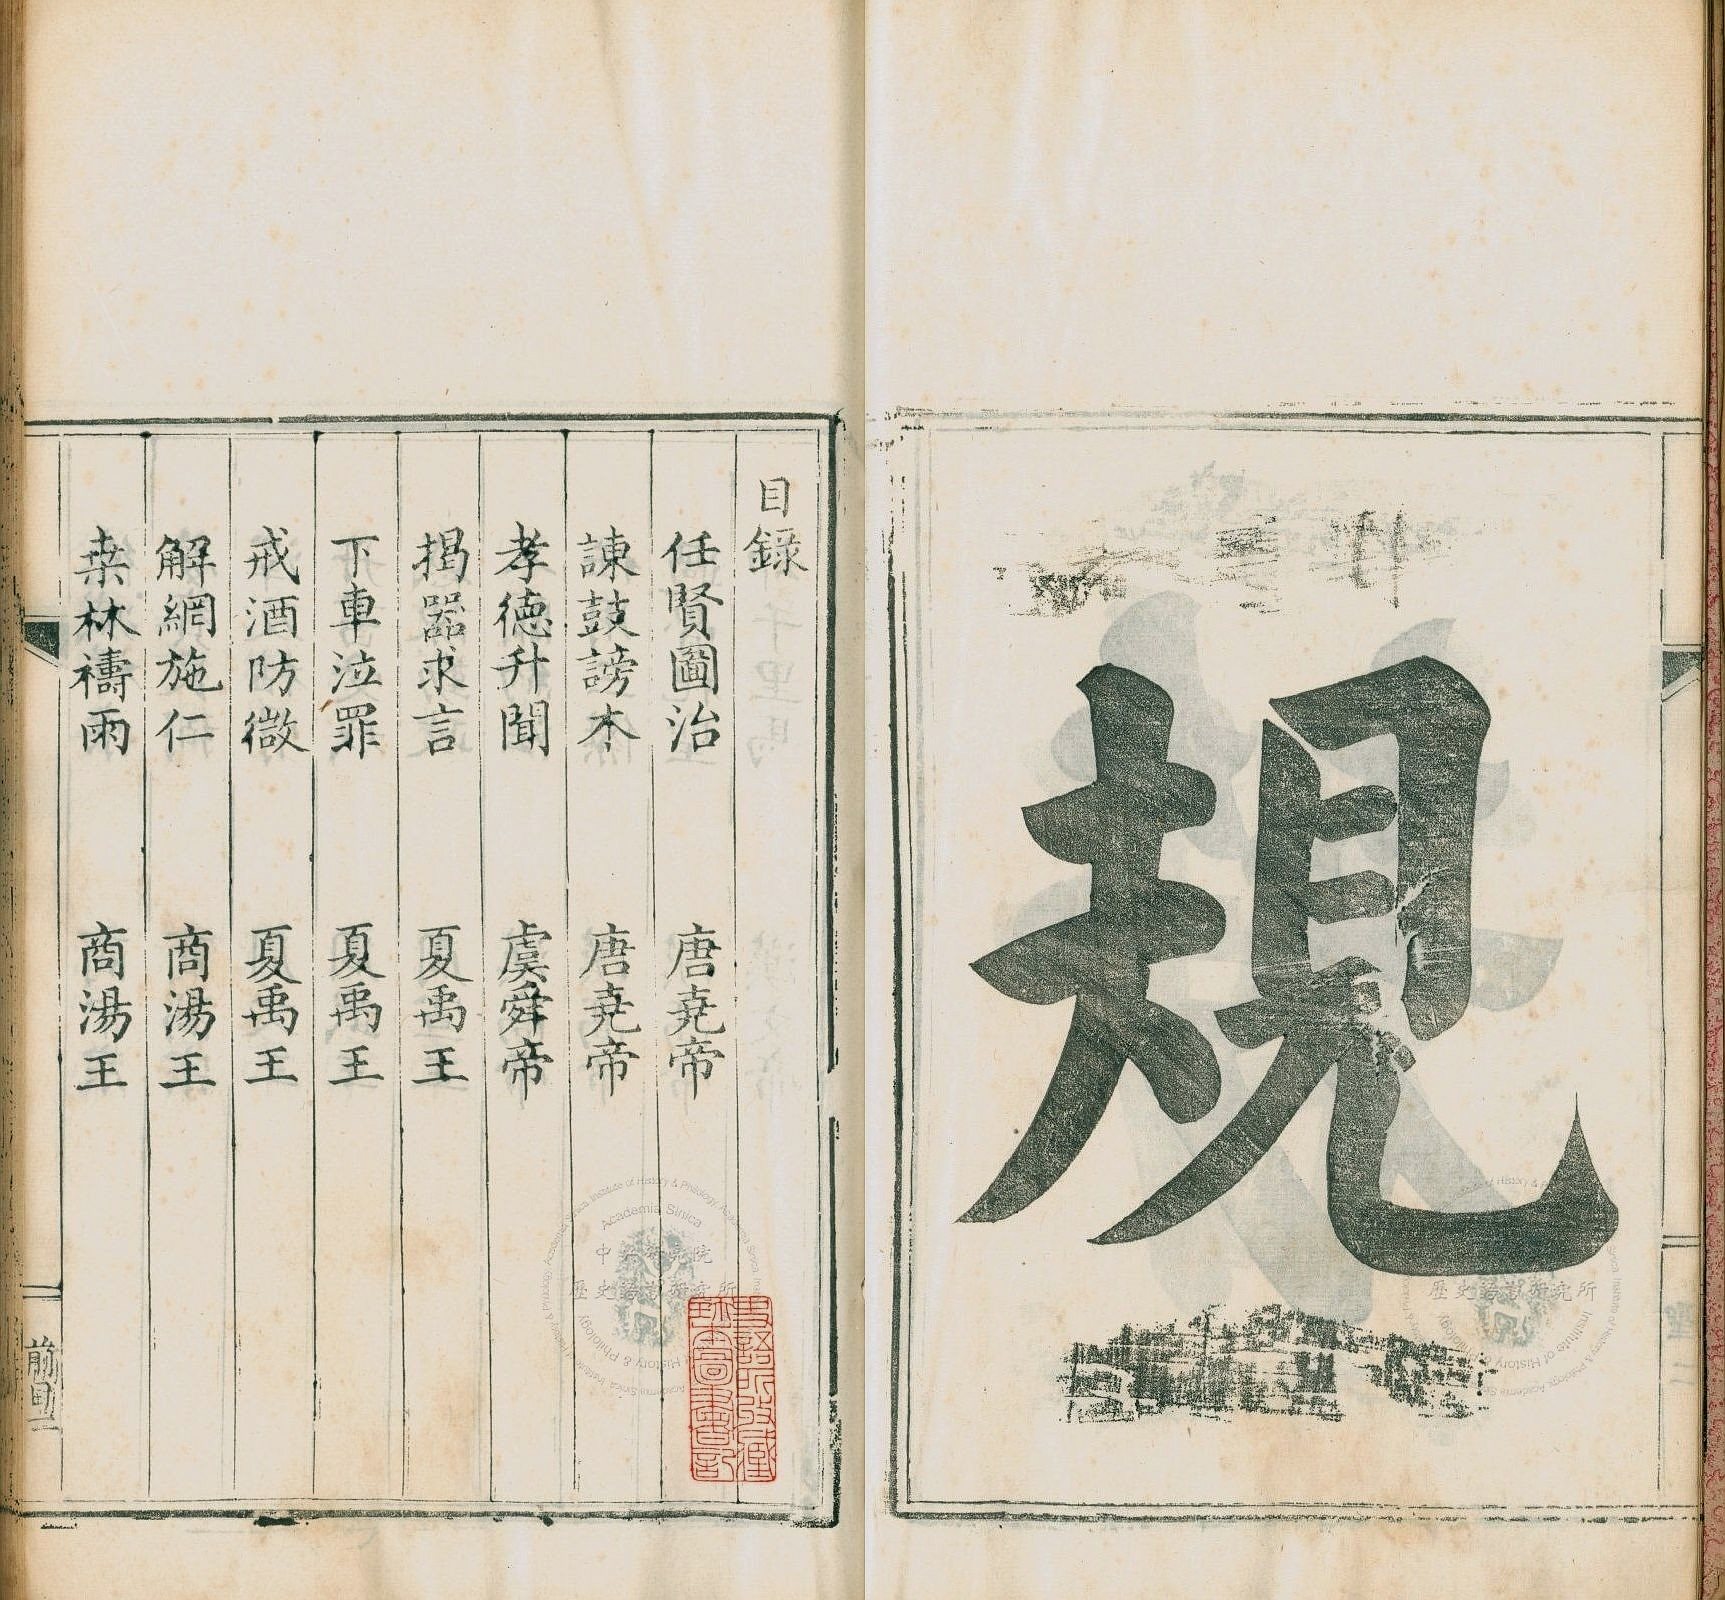 規
目錄
任賢圖治 唐堯帝
諫鼓謗木 唐堯帝
孝德升聞 虞舜帝
揭器求言 夏禹王
下車泣罪 夏禹王
戒酒防微 夏禹王
解網施仁 商湯王
桒林禱雨 商湯王
前目一
Academia Sinica
中央研究院
歷史語言研究所
Institute of History & Philology
歷史語言研究所
Institute of History & Philology